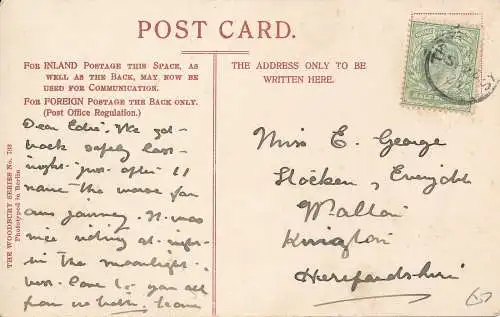 POST CARD.
FOR INLAND POSTAGE THIS SPACE, AS
WELL AS THE BACK, MAY NOW BE
USED FOR COMMUNICATION.
FOR FOREIGN POSTAGE THE BACK ONLY.
(Post Office Regulation.)
THE ADDRESS ONLY TO BE
WRITTEN HERE.
Dear Edie, We got
back safely last
night just after 11
none the worse for
our journey. It was
nice riding at night
in the moonlight
best love to you all
from us both,
Miss E. George
Stocken, Evenjobb
Walton
Kington
Herefordshire
THE WOODBURY SERIES No.
Phototyped in Berlin